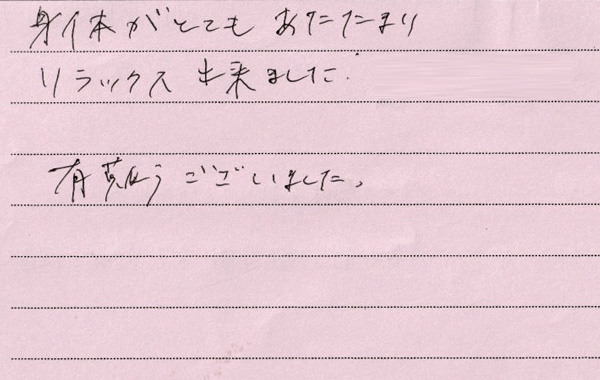 身体がとても あたたまり
リラックス 出来ました.
有難うございました。